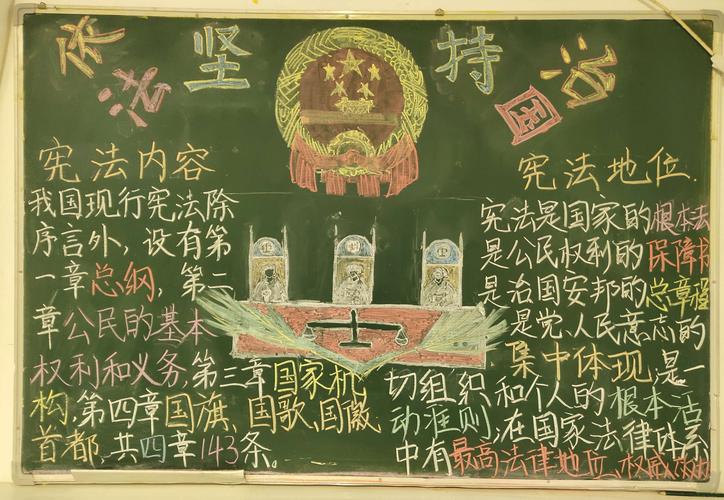 坚持
依法
治国
宪法内容
我国现行宪法除
序言外，设有第
一章总纲，第二
章公民的基本
权利和义务，第三章国家机
构，第四章国旗、国歌、国徽
首都，共四章143条。
宪法地位
宪法是国家的根本法
是公民权利的保障书
是治国安邦的总章程
是党、人民意志的
集中体现，是一
切组织和个人的根本活
动准则，在国家法律体系
中有最高法律地位、权威